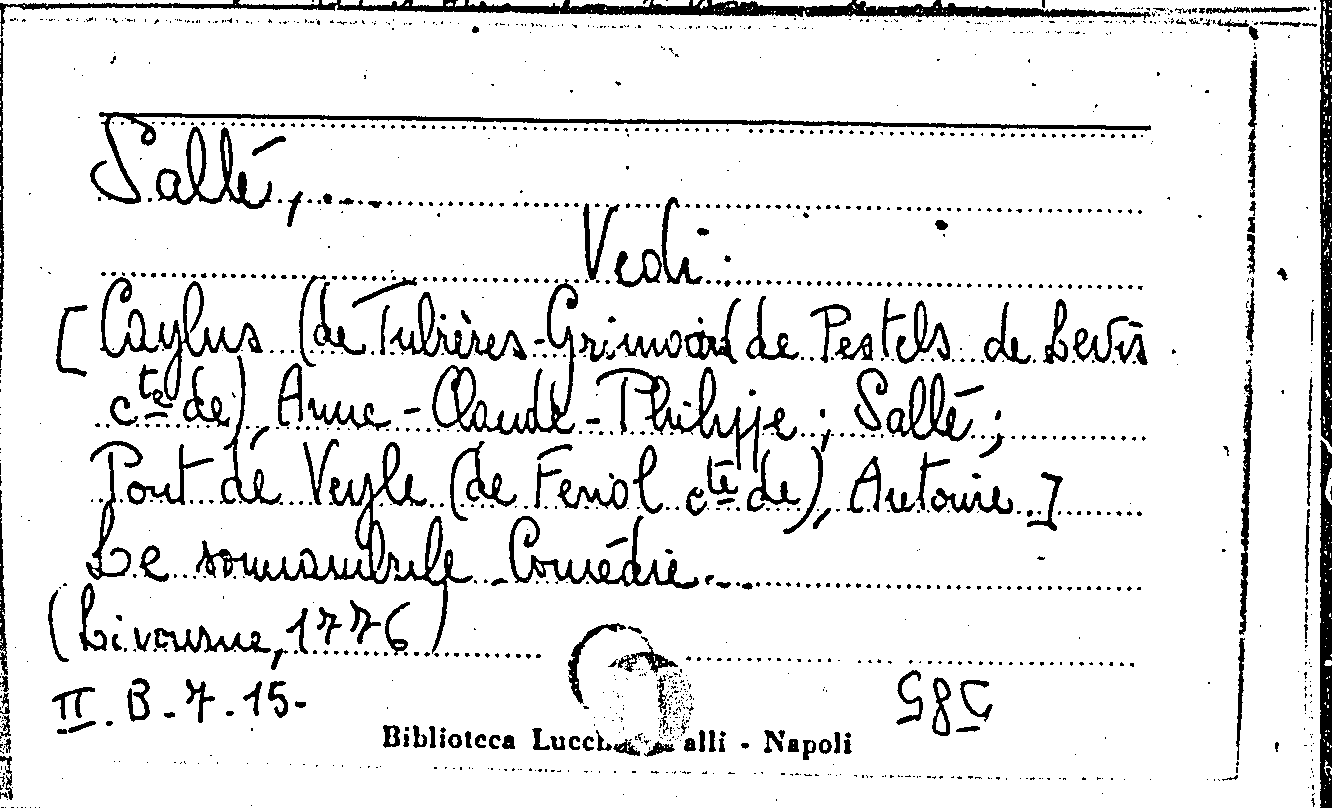 Sallé, ...
Vedi:
[Caylus (de Tubières-Grimoard de Pestels de Levis
cte de), Anne-Claude-Philippe; Sallé;
Pont de Veyle (de Feriol cte de), Antoine.]
Le somnambule. Comédie...
(Livourne, 1776)
II. B-7.15-
585
Biblioteca Lucch alli - Napoli